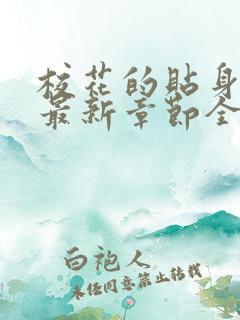 校花的貼身
最新章節全
白袍人
未经同意禁止转载